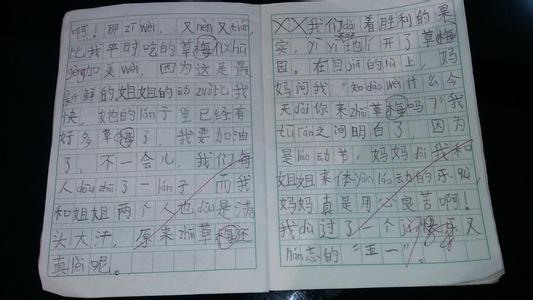 啊！那zī wèi，又nèn又tián，
比我平时吃的草梅似hū
gèng加美wèi，因为这是最
新鲜的
姐姐的动zuò比我
快，她的lán子里已经有
好多草梅了，我要加油
了，不一会儿，我们每
人dōu zhāi了一lán子，而我
和姐姐两个人也dōu是满
头大汗，原来zhāi草梅还
真lèi呢。
我们dài着胜利的果
实，yī yī地lí开了草梅
园。在回jiā的lù上，妈
妈问我："知dào wèi什么今
天dài你来zhāi草梅吗？"我
tū rán之间明白了，因为
是láo动节，妈妈dài我和
姐姐来体yàn láo动的乐qù，
妈妈真是用心良苦啊！
我dù过了一个快乐又
nán忘的"五一"。